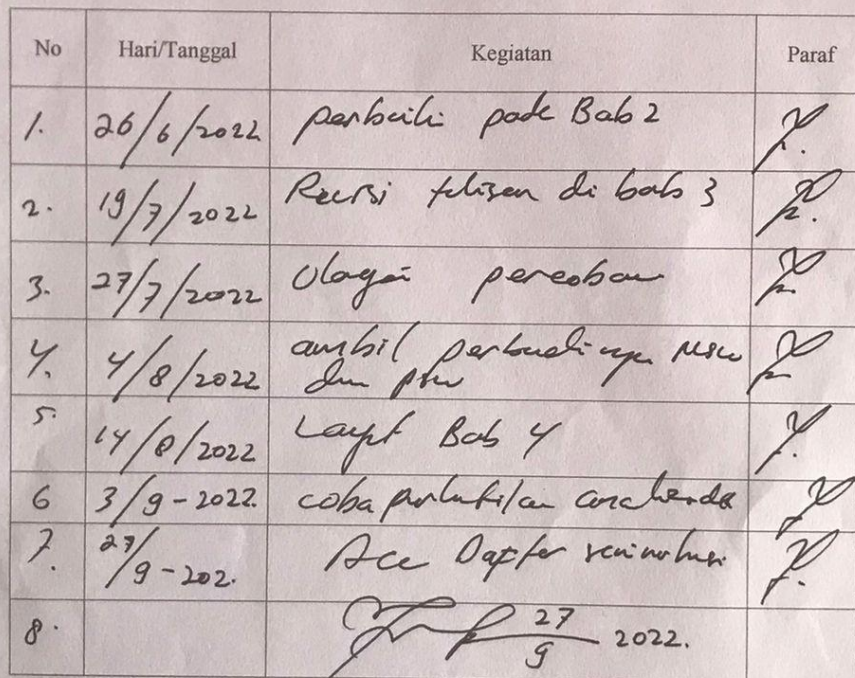 No Hari/Tanggal Kegiatan Paraf
1. 26/6/2022 perbaiki pada Bab 2
2. 19/7/2022 Revisi tulisan di bab 3
3. 27/7/2022 Ulangi percobaan
4. 4/8/2022 ambil perbandingan
dan
5. 14/8/2022 Lanjut Bab 4
6 3/9-2022. coba
7. 27/9-202. Acc Daftar
8. 27/9 2022.